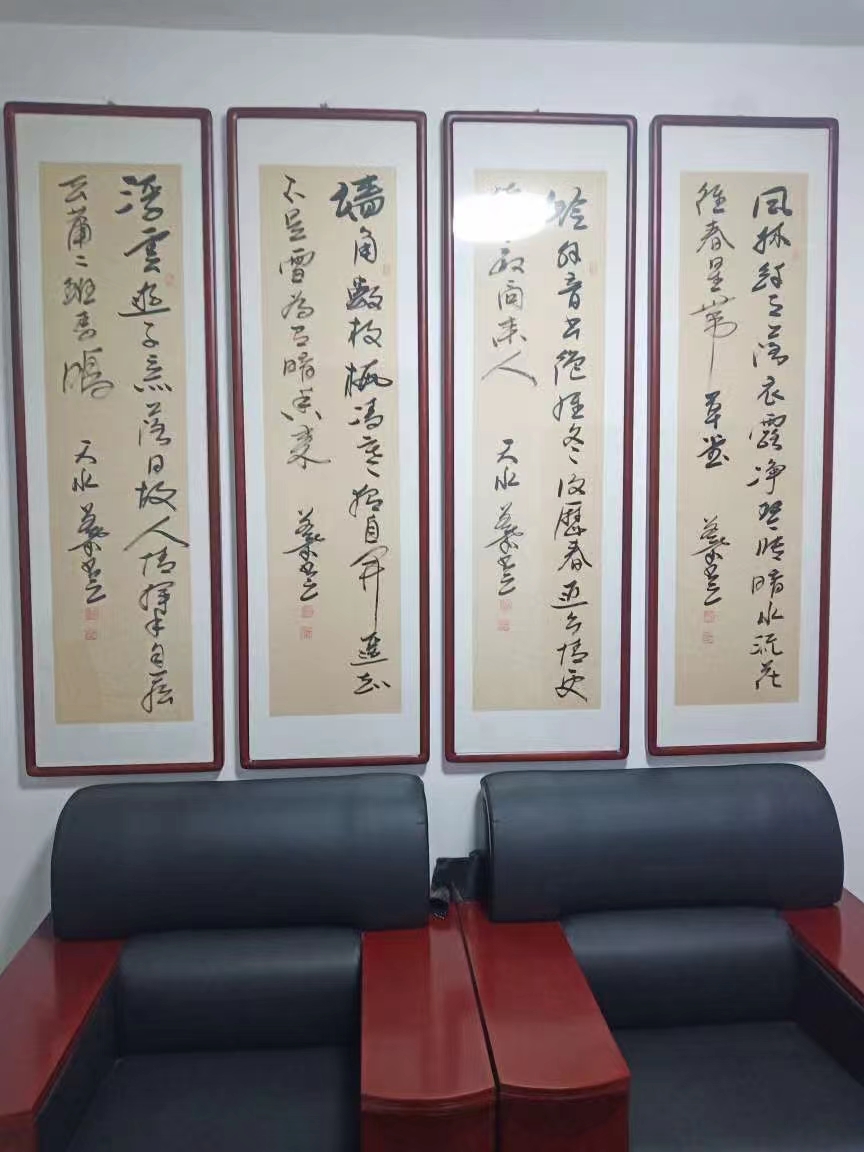 风林纤月落衣露净琴张暗水流花
径春星带草堂
岭外音书绝经冬复历春近乡情更
敢问来人
天水
墙角数枝梅凌寒独自开遥知
不是雪为有暗香来
浮雲游子意落日故人情挥手自兹
去萧〻班马鸣
天水